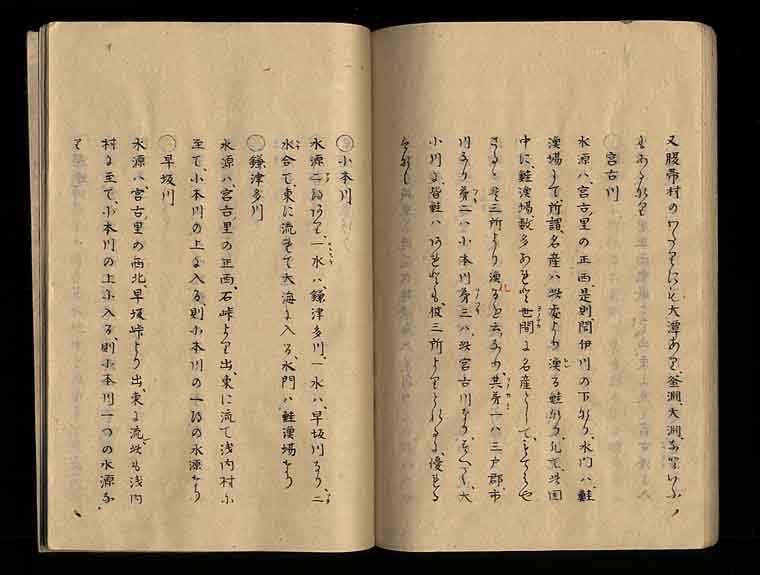 又腹帯村のわたりにも大潭あり、釜淵、大淵、などいふ
もありけり
宮古川
水源ハ、宮古里の正西、是則、閉伊川の下なり、水門ハ、鮭
漁場にて、所謂、名産ハ、此処より漁る鮭なり、凡て、此国
中に、鮭漁場、数多あれど、世間に名産として、もてはや
さるゝ、三所より漁るを云なり、其第一ハ、三戸郡、市
川なり、第二ハ、小本川、第三ハ、此宮古川なり、大
小川に皆鮭ハあれども、彼三所よりとれるに、優れる
はなし
小本川
水源二流あり、一水ハ、鎌津多川、一水ハ、早坂川なり、二
水合て、東に流れて大海に入る、水門ハ鮭漁場なり
鎌津多川
水源ハ、宮古里の正西、石峠より出、東に流て浅内村に
至て、小本川の上に入る、則小本川の一流の水源なり
早坂川
水源ハ、宮古里の西北、早坂峠より出、東に流、此も浅内
村に至て、小本川の上に入る、則小本川一つの水源な
り